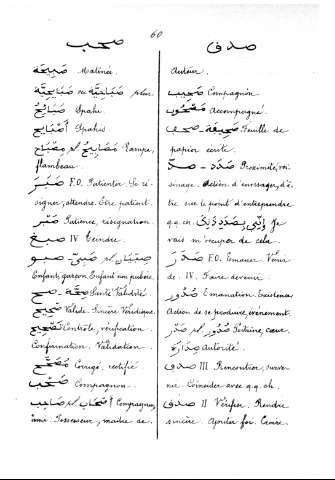 60
صحب
صدق
صَبِيحَة Matinée.
صَبَاحِيَّة ou صَبَايِحِيَّة plur
صَبَايْحِي Spahi.
Spahis
مِصْبَاح pl مَصَابِيح Lampe,
flambeau.
صَبَرَ F.O. Patienter. Se ré-
signer, attendre. Être patient.
صَبْر Patience, résignation.
صبغ IV Teindre.
صبو صَبِيّ pl صِبْيَان
Enfant, garçon. Enfant impubère.
صح صِحَّة Santé. Validité.
صَحِيح Valide. Sincère. Véridique
تَصْحِيح Contrôle, vérification.
Confirmation. Validation.
مُصَحَّح Corrigé, rectifié
صَحِبَ Compagnon.
صَاحِب pl أَصْحَاب Compagnon,
ami. Possesseur, maître de.
Autoriser.
صَحِيب Compagnon.
مَصْحُوب Accompagné.
صحف صَحِيفَة Feuille de
papier écrite.
صدّ صَدَد Proximité, voi-
sinage. Action d'envisager, d'ê-
tre sur le point d'entreprendre
q.q. ch. إِنِّي بِصَدَدِ ذَلِكَ Je
vais m'occuper de cela.
صَدَرَ F.O. Émaner. Venir
de. IV. Faire devenir.
صُدُور Émanation. Existence.
Action de se produire, événement.
صَدْر pl صُدُور Poitrine, cœur.
صَدَارَة Autorité.
صدف III Rencontrer, surve-
nir. Coïncider avec q.q. ch.
صدق II Vérifier. Rendre
sincère. Ajouter foi. Croire.